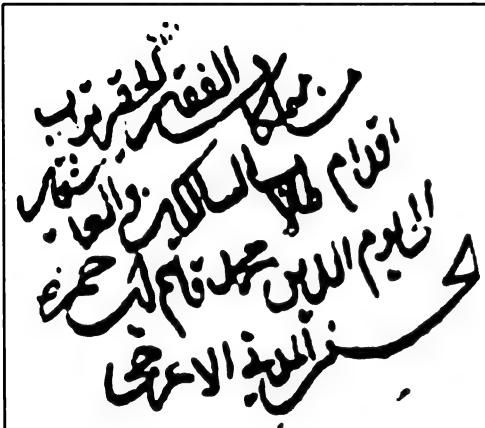 من الفقير الحقير تراب
اقدام السالكين والعاشقين
الى يوم الدين محمد قاسم ابن حمزه
المدني الاعرجي